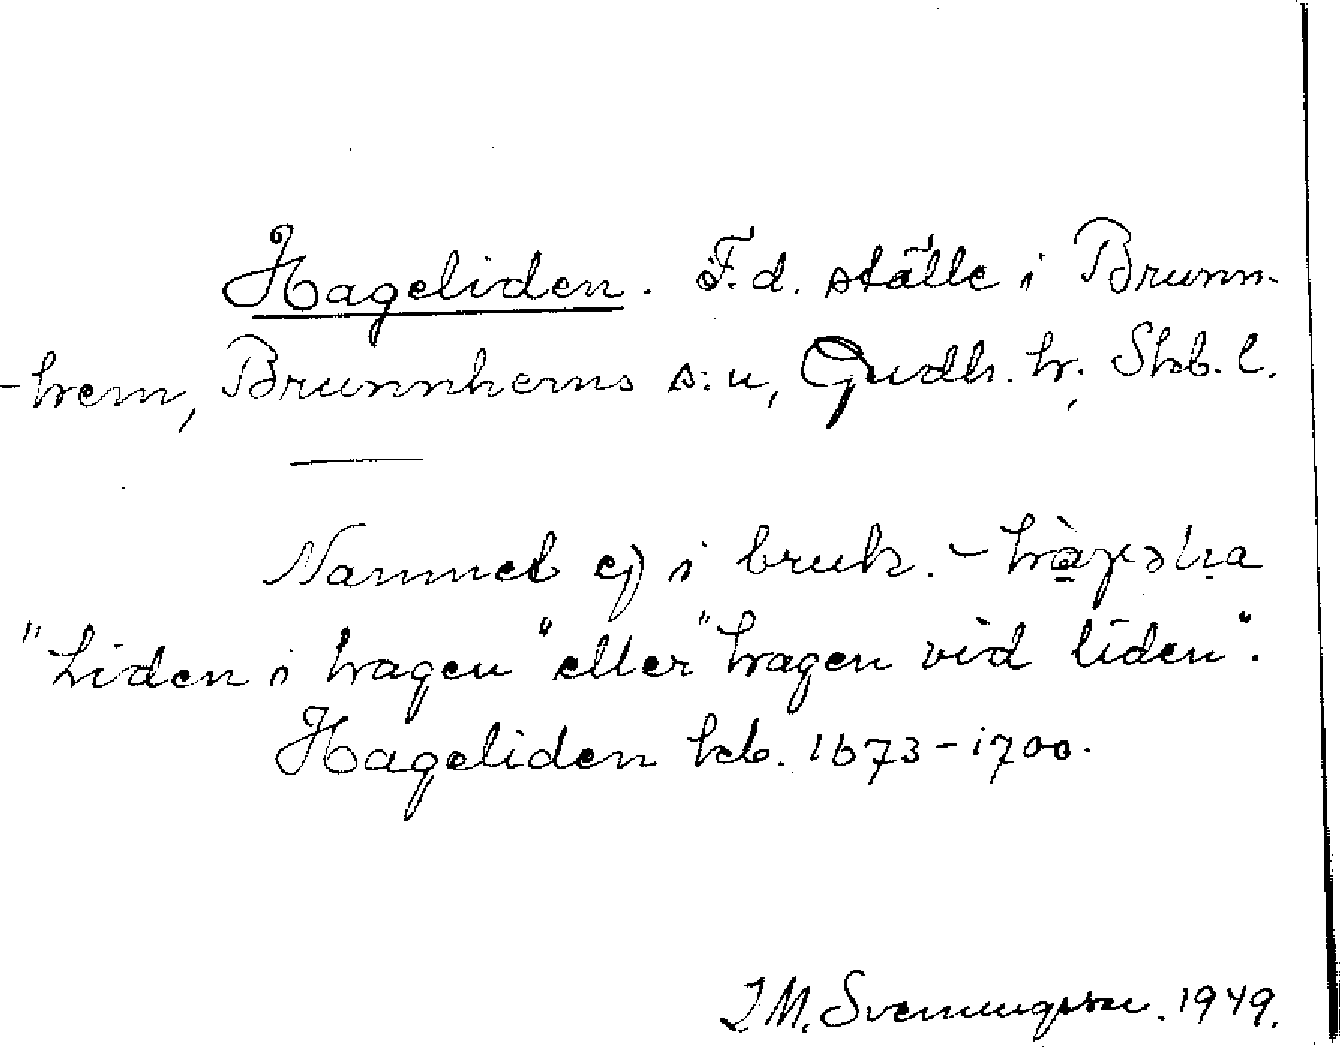 Hageliden. F.d. ställe i Brunn-
-hem, Brunnhems s:n, Gudh. h. Skb. l.
Namnet ej i bruk. -
"Liden i hagen" eller "hagen vid liden".
Hageliden heb. 1673-1700.
I M. Svenungsson. 1949.